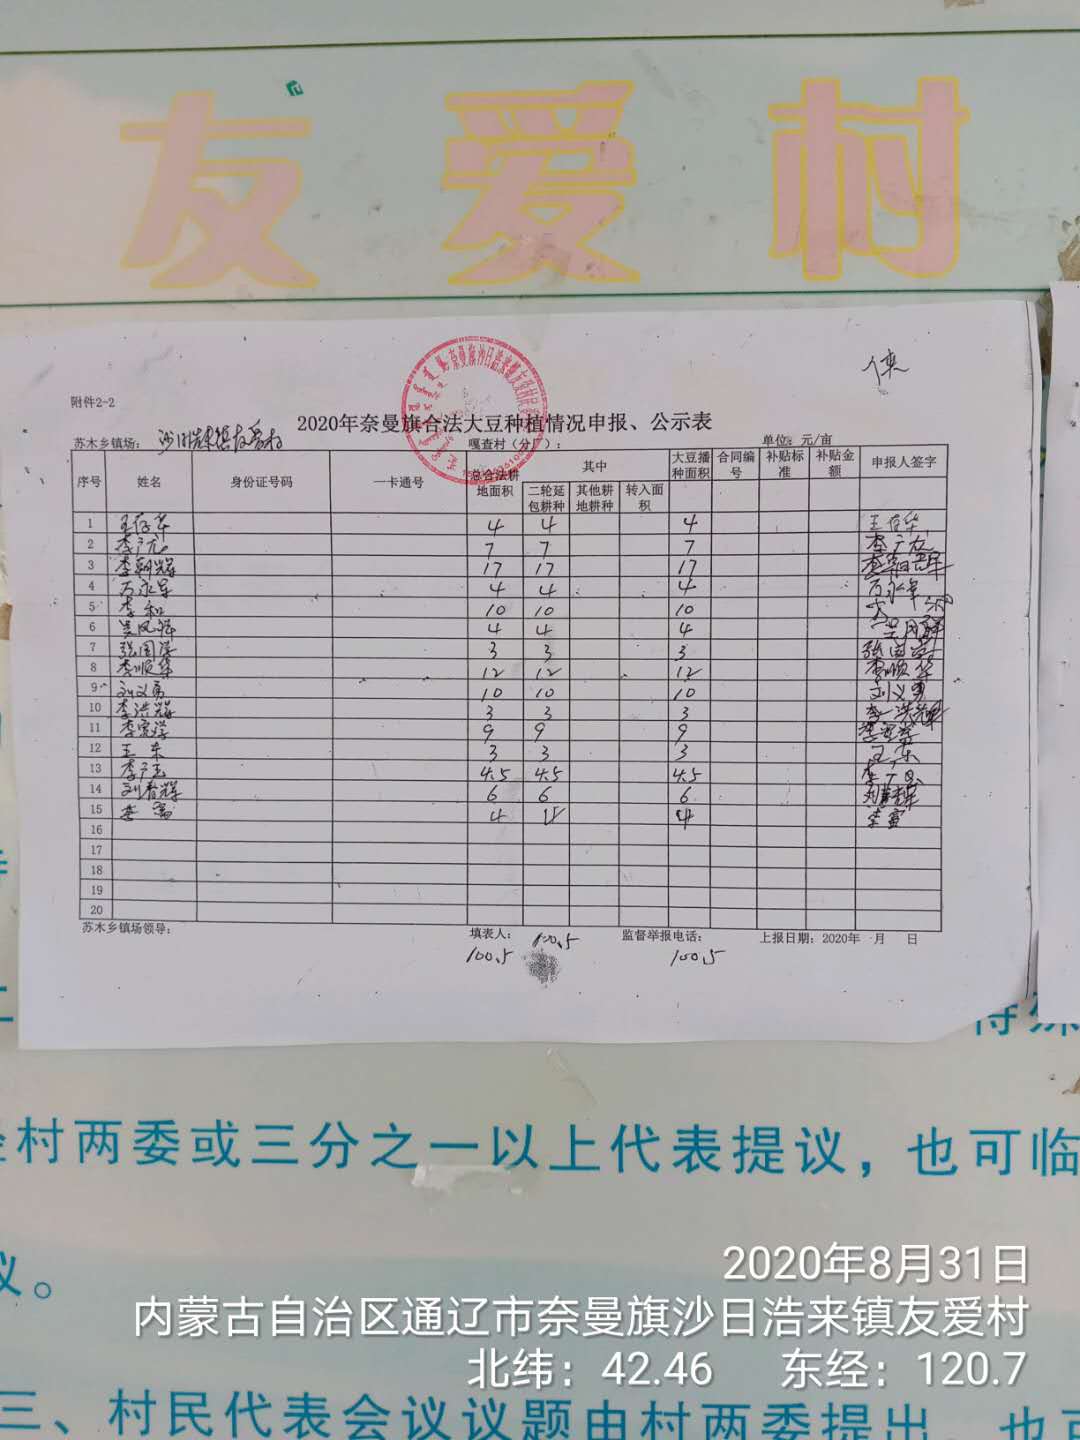 友爱村
附件2-2
2020年奈曼旗合法大豆种植情况申报、公示表
苏木乡镇场： 沙日浩来镇友爱村 嘎查村（分厂）： 单位：元/亩
序号 姓名 身份证号码 一卡通号 总合法耕地面积 其中 大豆播种面积 合同编号 补贴标准 补贴金额 申报人签字
二轮延包耕种 其他耕地耕种 转入面积
1 4 4 4
2 李广龙 7 7 7
3 李朝辉 17 17 17 李朝辉
4 万永军 4 4 4 万永军
5 李和 10 10 10
6 4 4 4
7 3 3 3
8 李顺华 12 12 12 李顺华
9 刘义勇 10 10 10 刘义勇
10 李洪辉 3 3 3 李洪辉
11 9 9 9
12 王东 3 3 3 王东
13 4.5 4.5 4.5
14 刘春辉 6 6 6
15 李富 4 4 李富
16
17
18
19
20
苏木乡镇场领导： 填表人： 监督举报电话： 上报日期：2020年 月 日
100.5 100.5 100.5
村两委或三分之一以上代表提议，也可临
议。
三、村民代表会议议题由村两委提出，也可
2020年8月31日
内蒙古自治区通辽市奈曼旗沙日浩来镇友爱村
北纬：42.46 东经：120.7